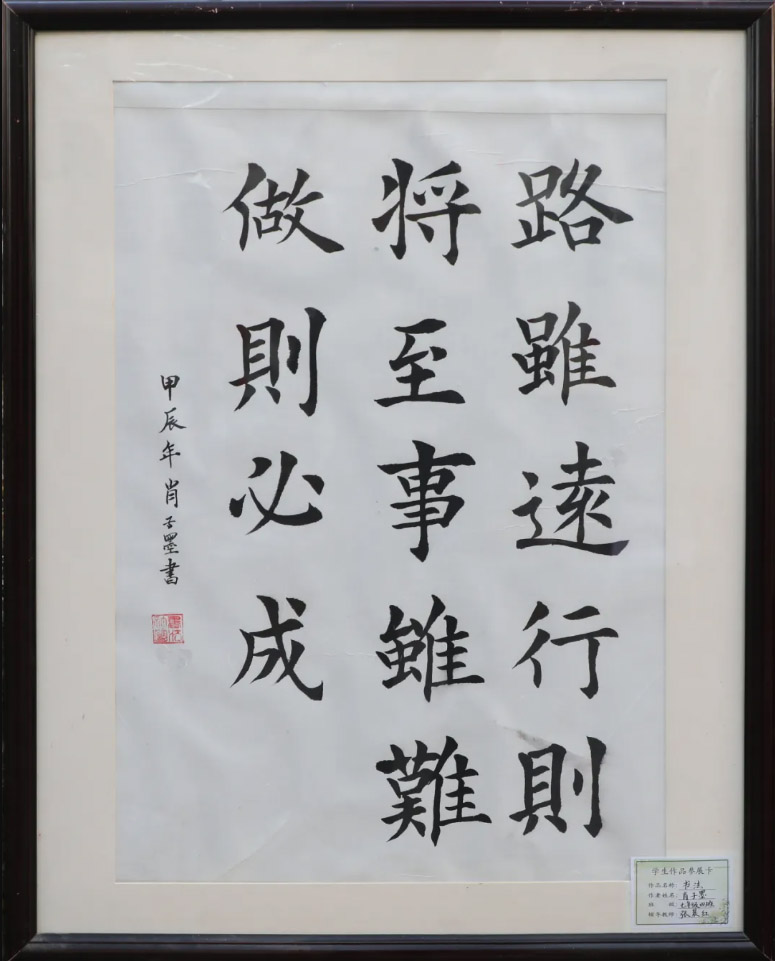 路雖遠行則
將至事雖難
做則必成
甲辰年肖子墨書
学生作品参展卡
作品名称：书法
作者姓名：肖子墨
班 级：
辅导教师：张晨红